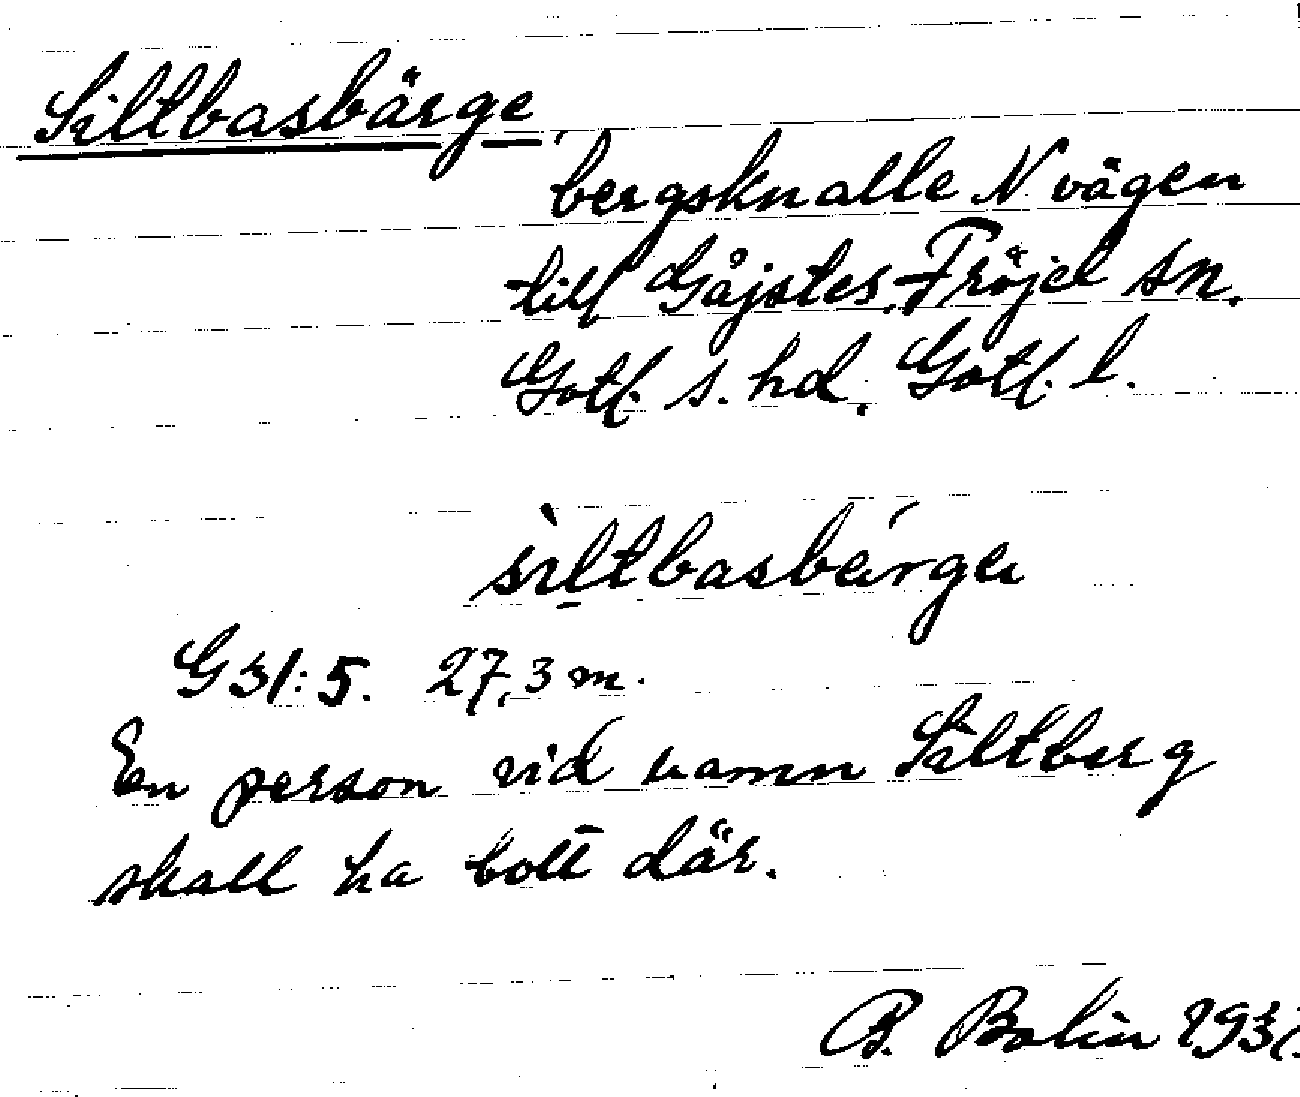 Siltbasbärge,
bergsknalle N vägen
till Gåjstes, Fröjel sn.
Gotl. s. hd. Gotl. l.
G 31:5. 27,3 m.
En person vid namn Siltberg
skall ha bott där.
B. Bolin 193